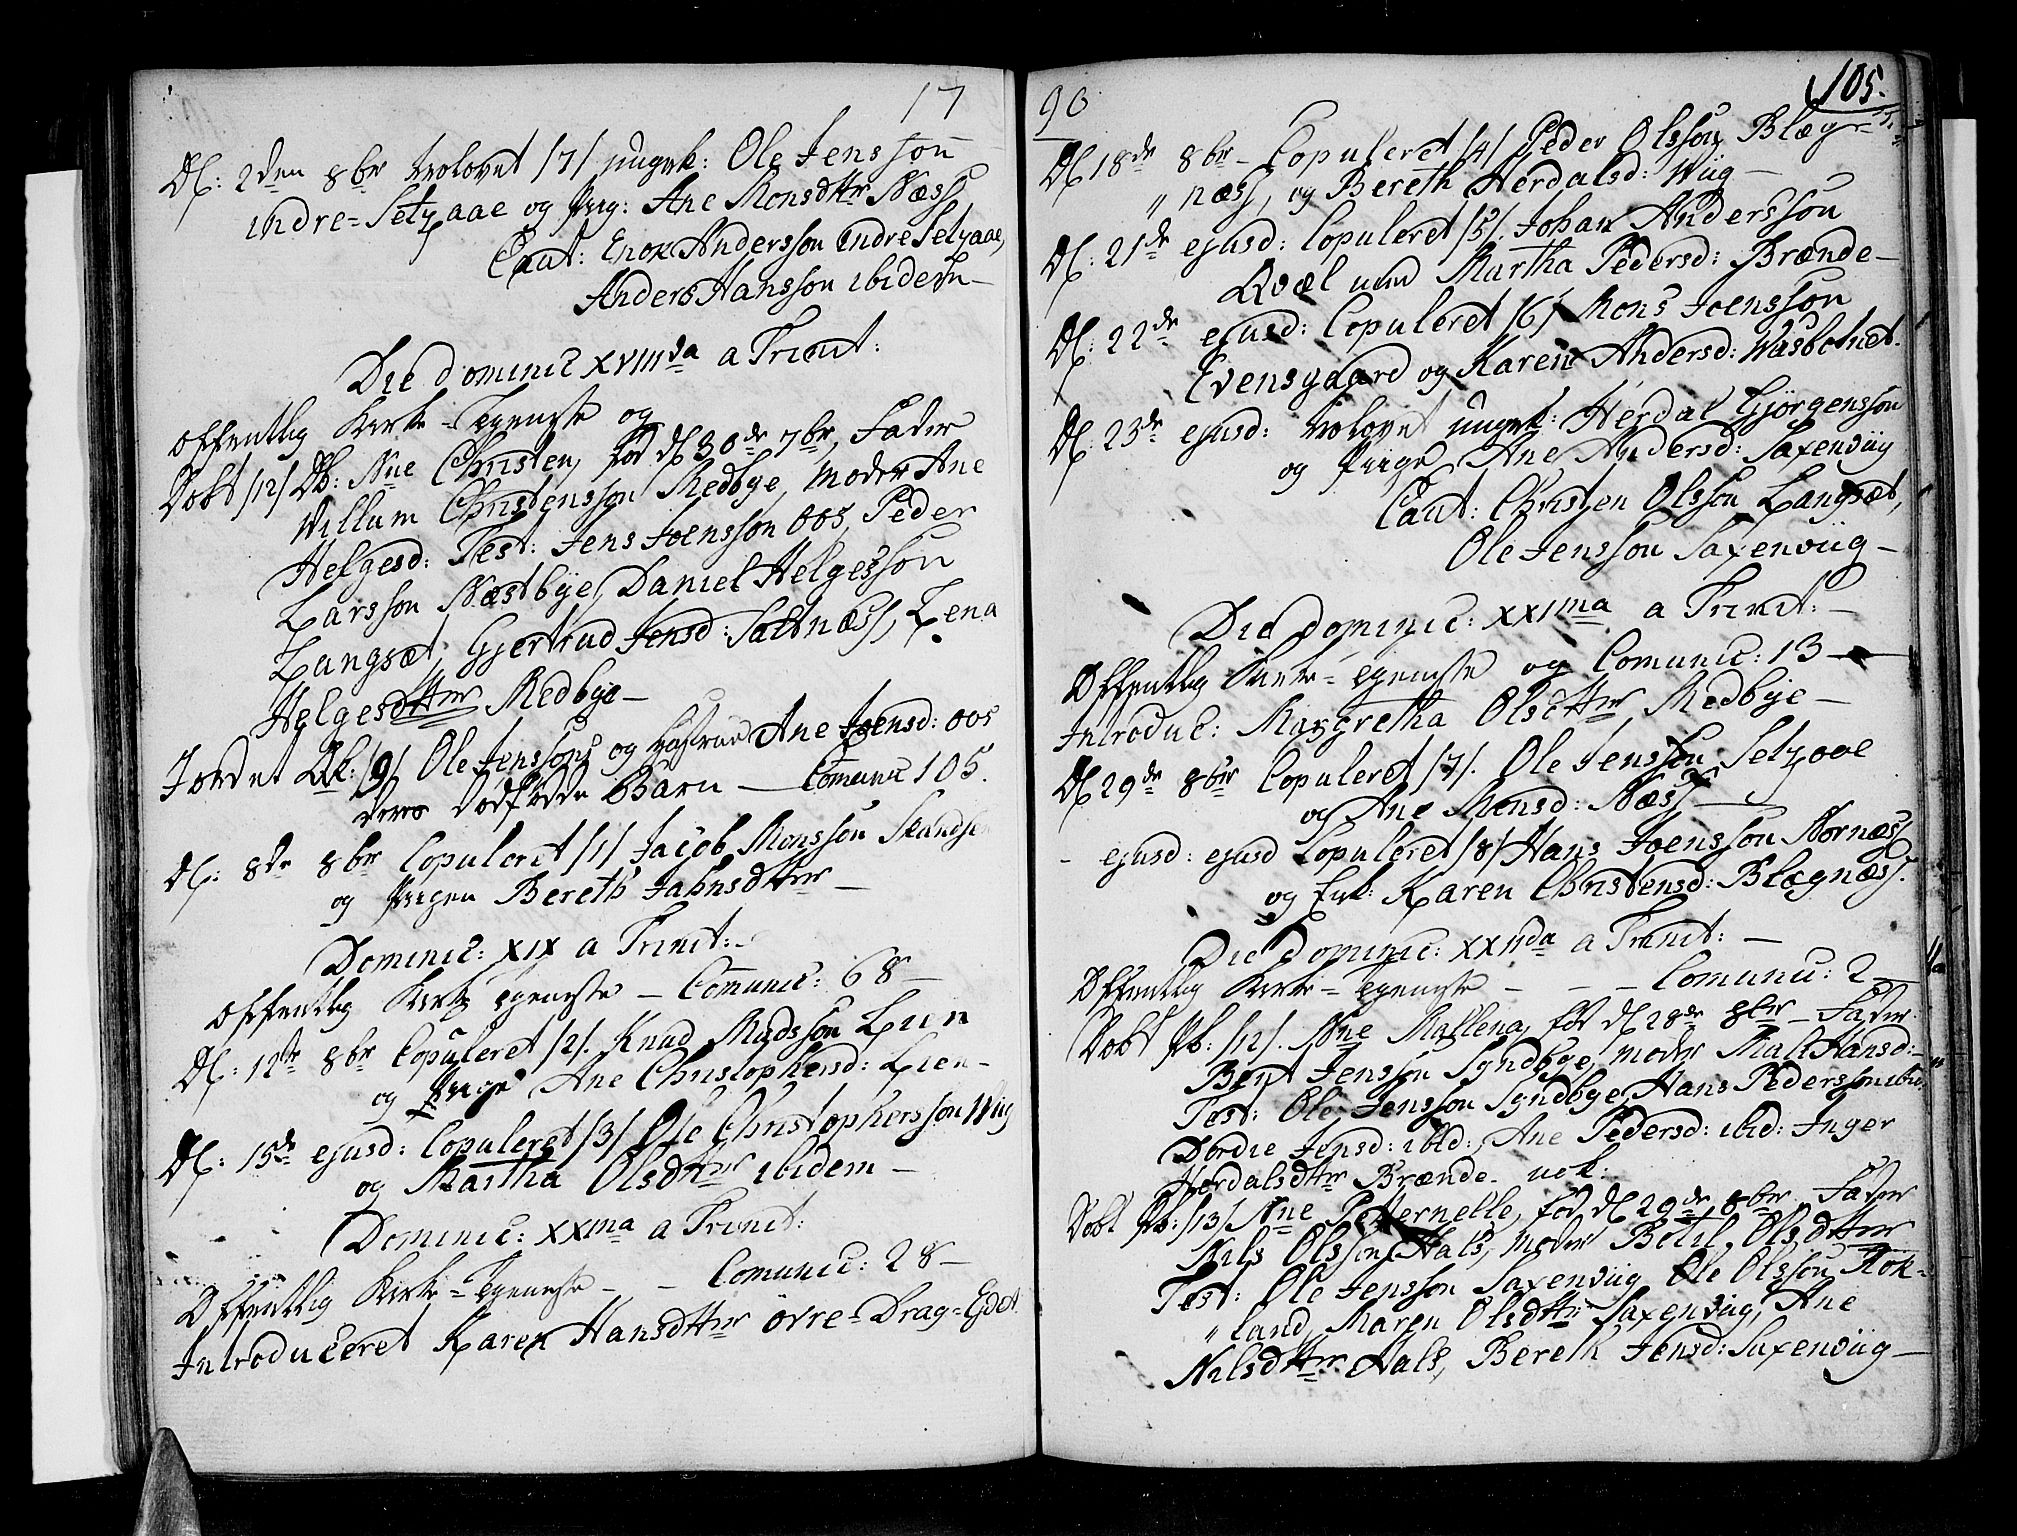 17
D: 2den 8br trolovet /7/ ungk: Ole Jensson
indre-Setzaae og Pig: Ane Monsdttr Næss
Caut: Enok Andersson indre Setzaae,
Anders Hansson ibidem—
Die dominic XVIIIda a Trinit:
Offentlig Kirke-Tgeneste og
Døbt /12/ Db: Nne Christen, fød d 30de 7br, Fader
Willum Christensson Medbye, Moder Ane
Helgesd: Test: Jens Joensson Oos, Peder
Larsson Næstbye, Daniel Helgesson
Langsæt, Gjertrud Jensd: Saltnæss, Lena
Helgesdttr Medbye—
Jordet Qk: /9/ Ole Jenssons og Hustrue Ane Joensd: Oos
Deres Dødfødde Barn — Comunic 105.
D: 8de 8br Copuleret /1/ Jacob Monsson Skandsen
og Pigen Bereth Jahnsdttr—
Dominic: XIX a Trinit:
Offentlig Kirke Tgeneste — Comunic: 68—
D: 12te 8br Copuleret /2/. Knud Madsson Lien
og Pige Ane Christophersd: Lien—
D: 15de ejusd: Copuleret /3/ Ole Christophersson Wiig
og Martha Olsdttr ibidem—
Dominic: XXma a Trinit:
Offentlig Kirke-Tgeneste — — Comunic: 28—
Introduceret Karen Hansdttr øvre-Drag-Edet
90
105.
D 18de 8br— Copuleret /4/ Peder Olsson Blæg-
" næss, og Bereth Herdalsd: Wiig—
D: 21de ejusd: Copuleret /5/. Johan Andersson
Qvæl med Martha Pedersd: Brænde—
D: 22de ejusd: Copuleret /6/ Mons Joensson
Evensgaard og Karen Andersd: Wasbotnet.
D: 23de ejusd: trolovet ungk: Herdal Gjørgensson
og Piige Ane Andersd: Saxenviig
Caut: Christen Olsson Langsæt,
Ole Jensson Saxenviig—
Die dominic: XXIma a Trinit:—
Offentlig Kirke-Tgeneste og Comunic: 13—
Introduc: Margretha Olsdttr Medbye—
D 29de 8br Copuleret /7/. Ole Jensson Setzaae
og Ane Monsd: Næss—
- ejusd: ejusd Copuleret /8/ Hans Joensson Nornæss
og Enk: Karen Christensd: Blægnæss.
Die Dominic: XXIIda a Trinit:—
Offentlig Kirke-Tgeneste — — — Comunic: 2—
Døbt Pb: /12/. Nne Mallena, fød d 28de 8br— Fader
Bent Jensson Syndbye, Moder Mali Hansd:—
Test: Ole Jensson Syndbye, Hans Pedersson ibid,
Dordie Jensd: ibid:, Ane Pedersd: ibid: Inger
Herdalsdttr Brænde. nok:
Døbt Pb: /13/ Nne Pethernelle, fød d 29de 8br Fader
Nils Olsson Hals, Moder Betil Olsdttr
Test: Ole Jensson Saxenviig Ole Olsson Rok-
" land, Maren Olsdttr Saxenviig, Ane
Nilsdttr Hals, Bereth Jensd: Saxenviig—